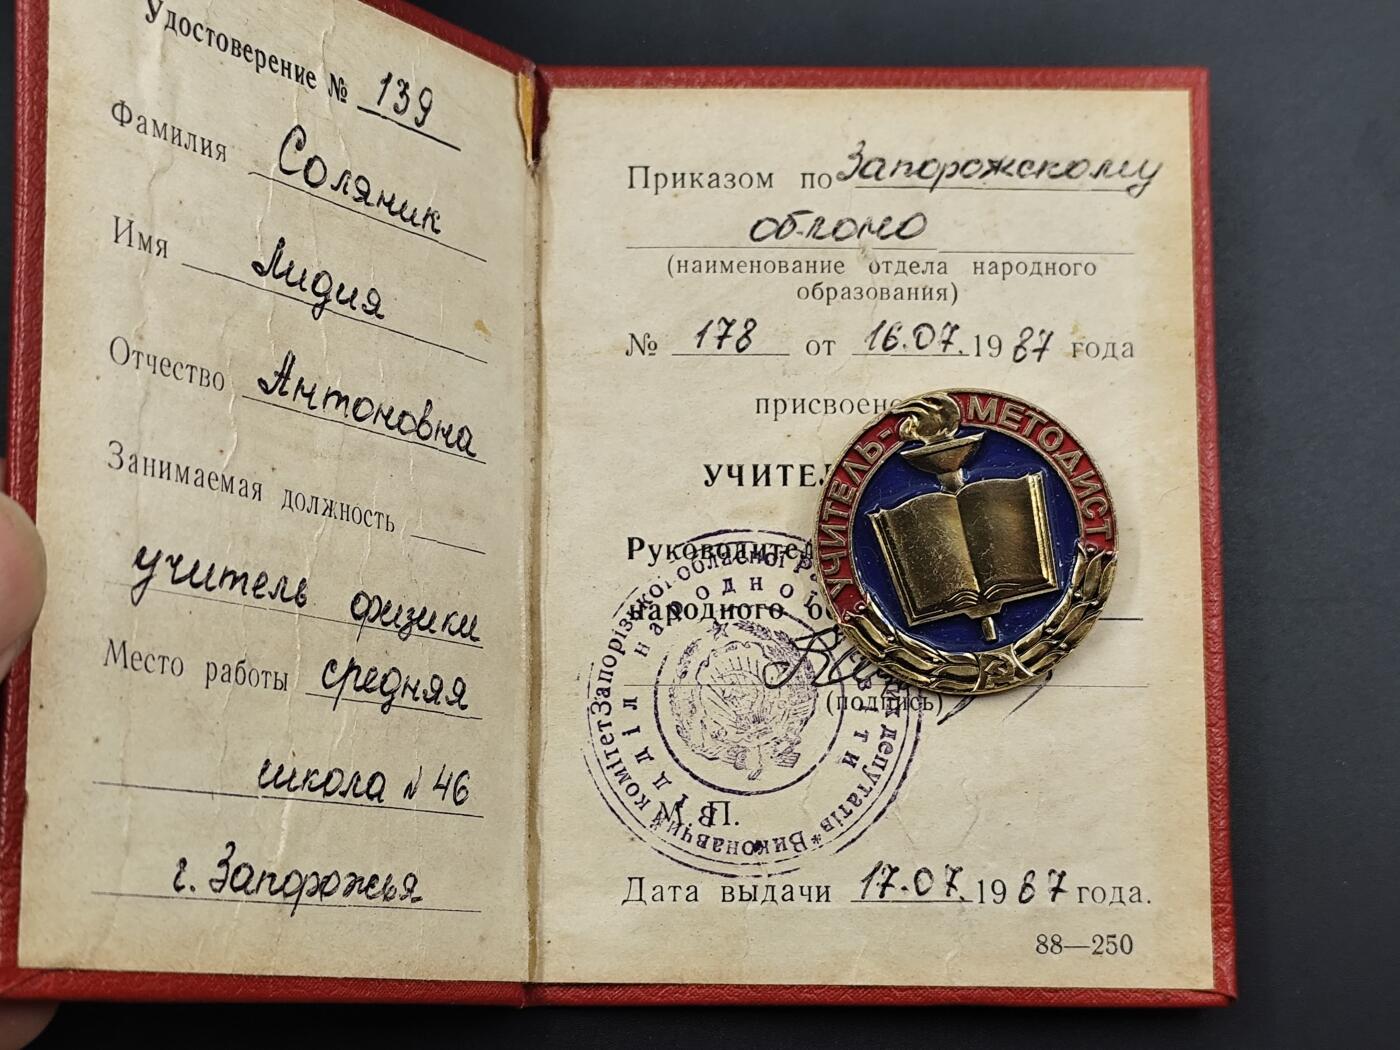 Удостоверение № 139
Фамилия Соляник
Имя Лидия
Отчество Антоновна
Занимаемая должность
учитель физики
Место работы средняя
школа № 46
г. Запорожья
Приказом по Запорожскому
облоно
(наименование отдела народного
образования)
№ 178 от 16.07.1987 года
присвоено
УЧИТЕЛ
Руководител
народного об
(подпись)
М. П.
Дата выдачи 17.07.1987 года.
88—250
УЧИТЕЛЬ-МЕТОДИСТ
Виконавчий комітет Запорізької обласної Р
депутатів
Відділ народної